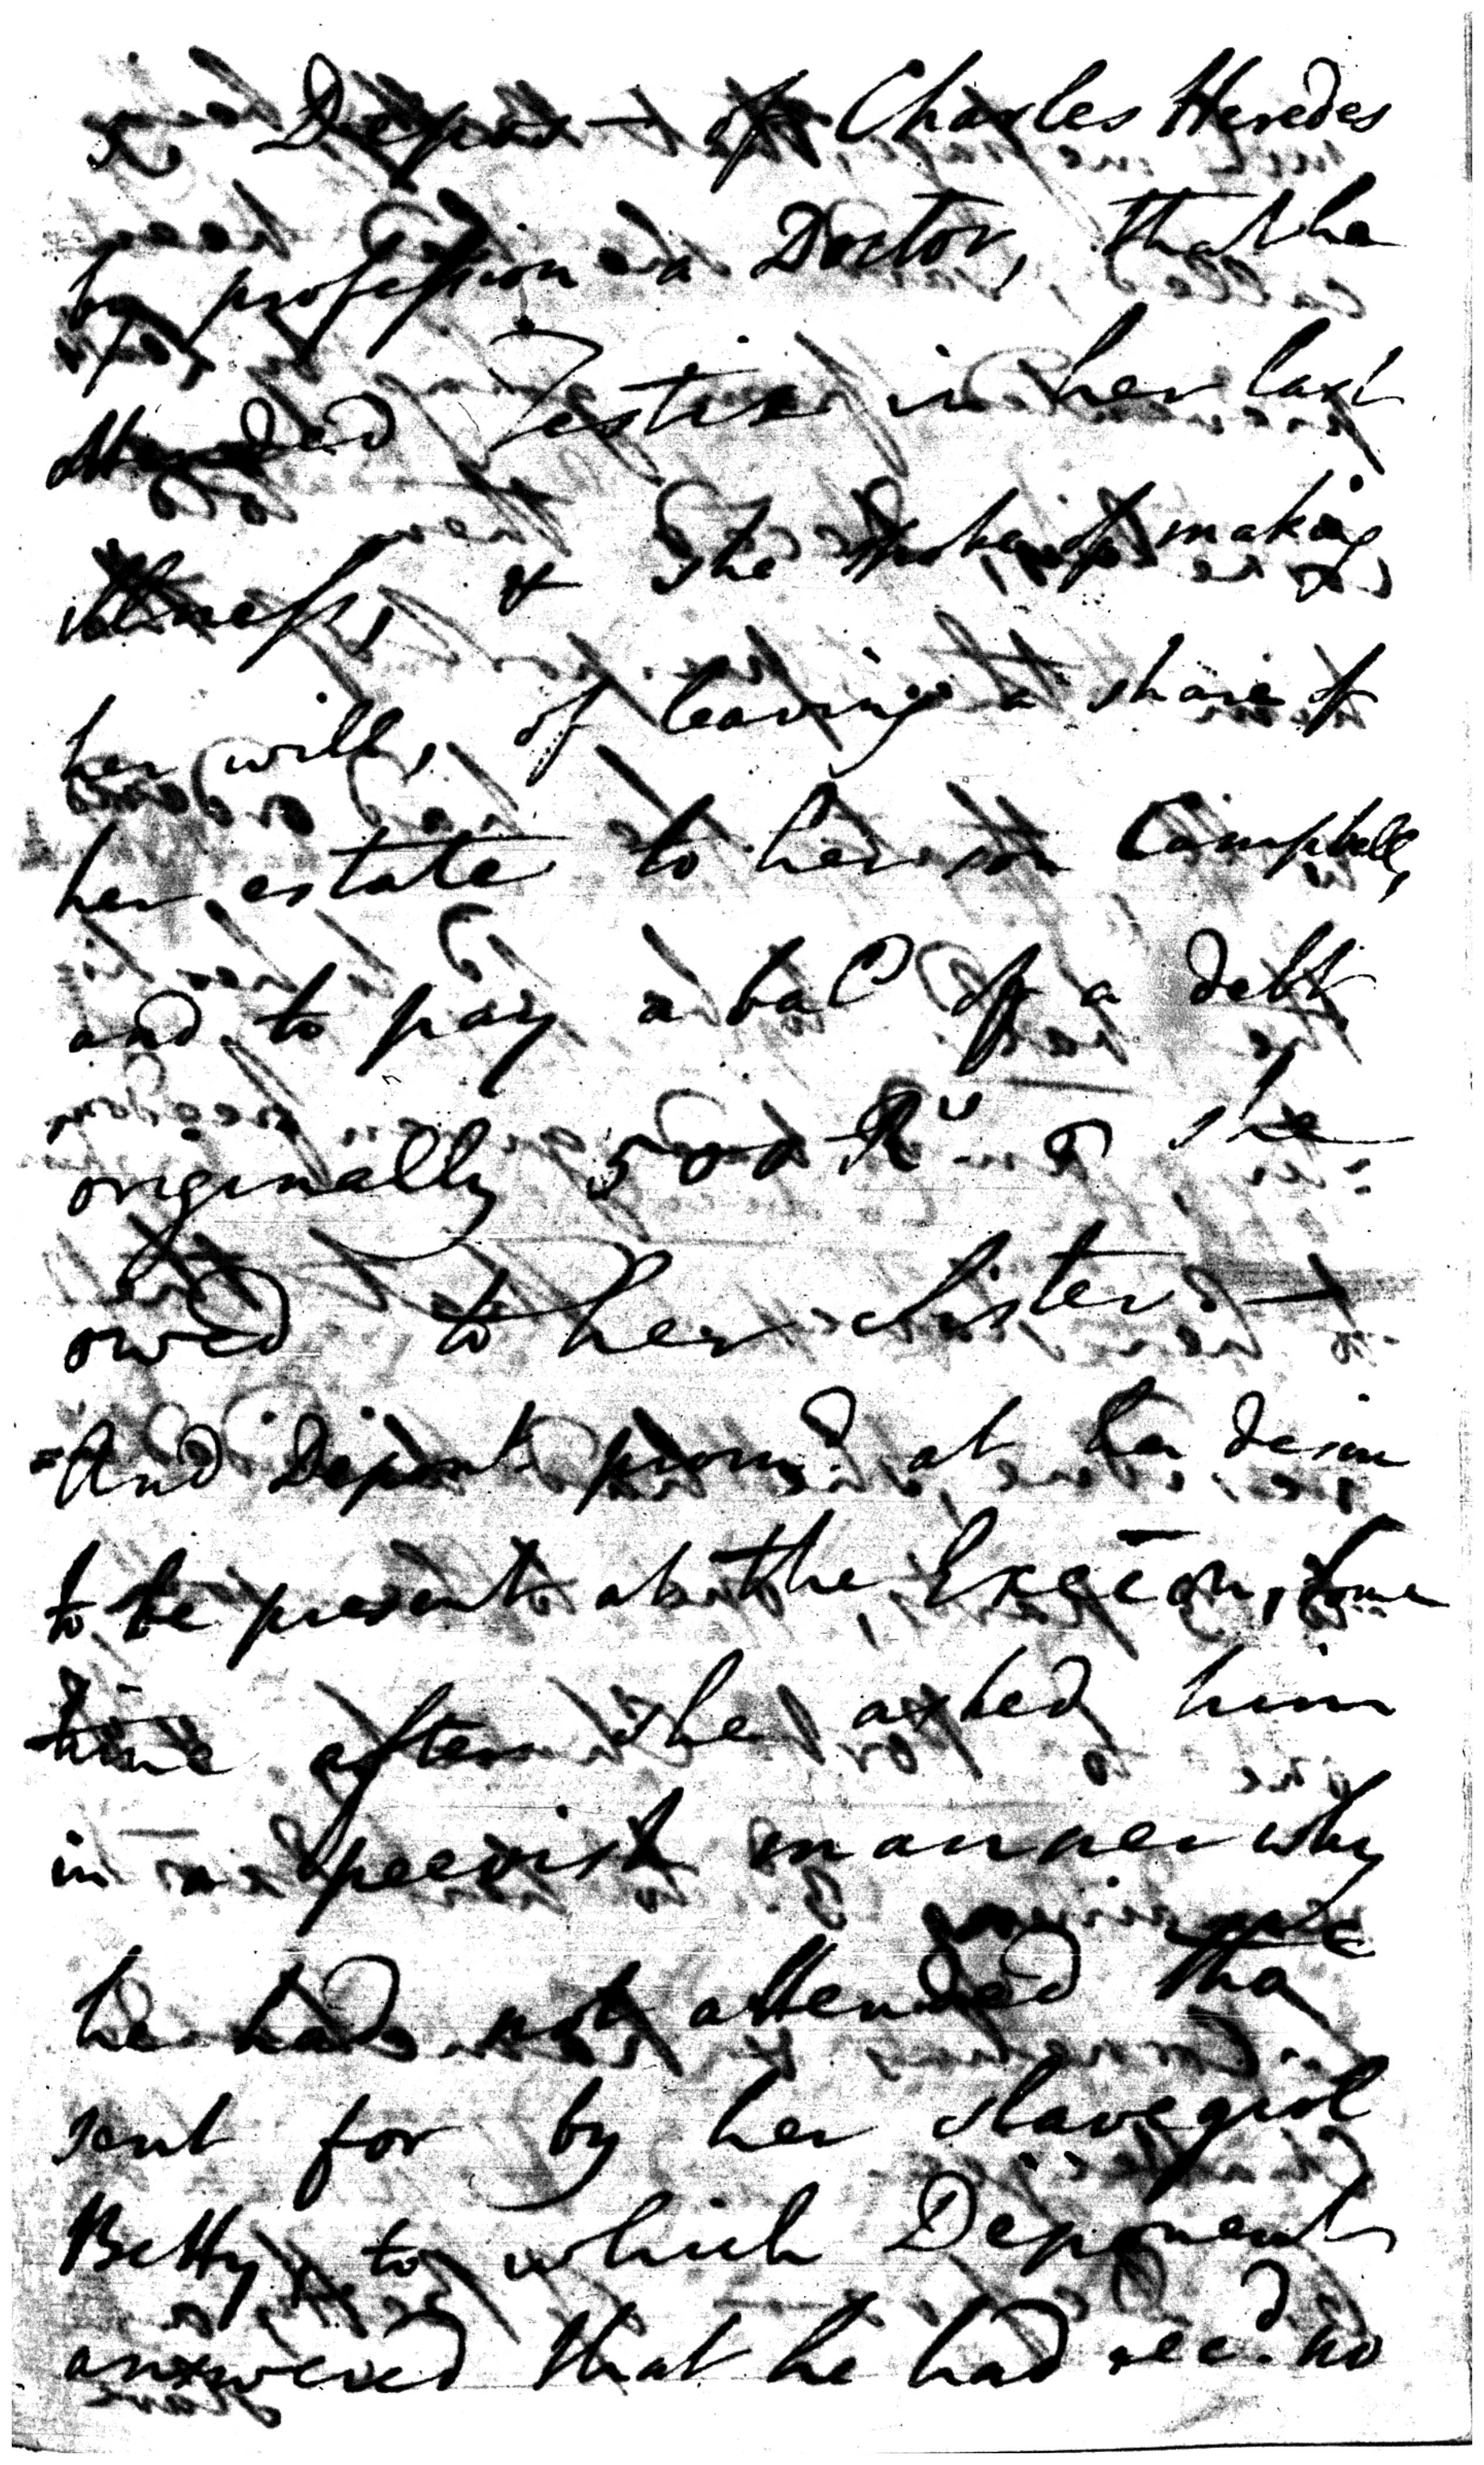 Depost of Charles Heredes
by profession a Doctor, that he
attended Testix in her last
illness, & she spoke of making
her will, of leaving a share of
her estate to her son Campbell,
and to pay a bal of a debt
originally 500 Rs she
owed to her sister. —
And Depont. promd. at her desire
to be present at the Execōn, some
time after she asked him
in a peevish manner why
he had not attended tho
sent for by her slave girl
Betty, to which Deponent
answered that he had recd. no